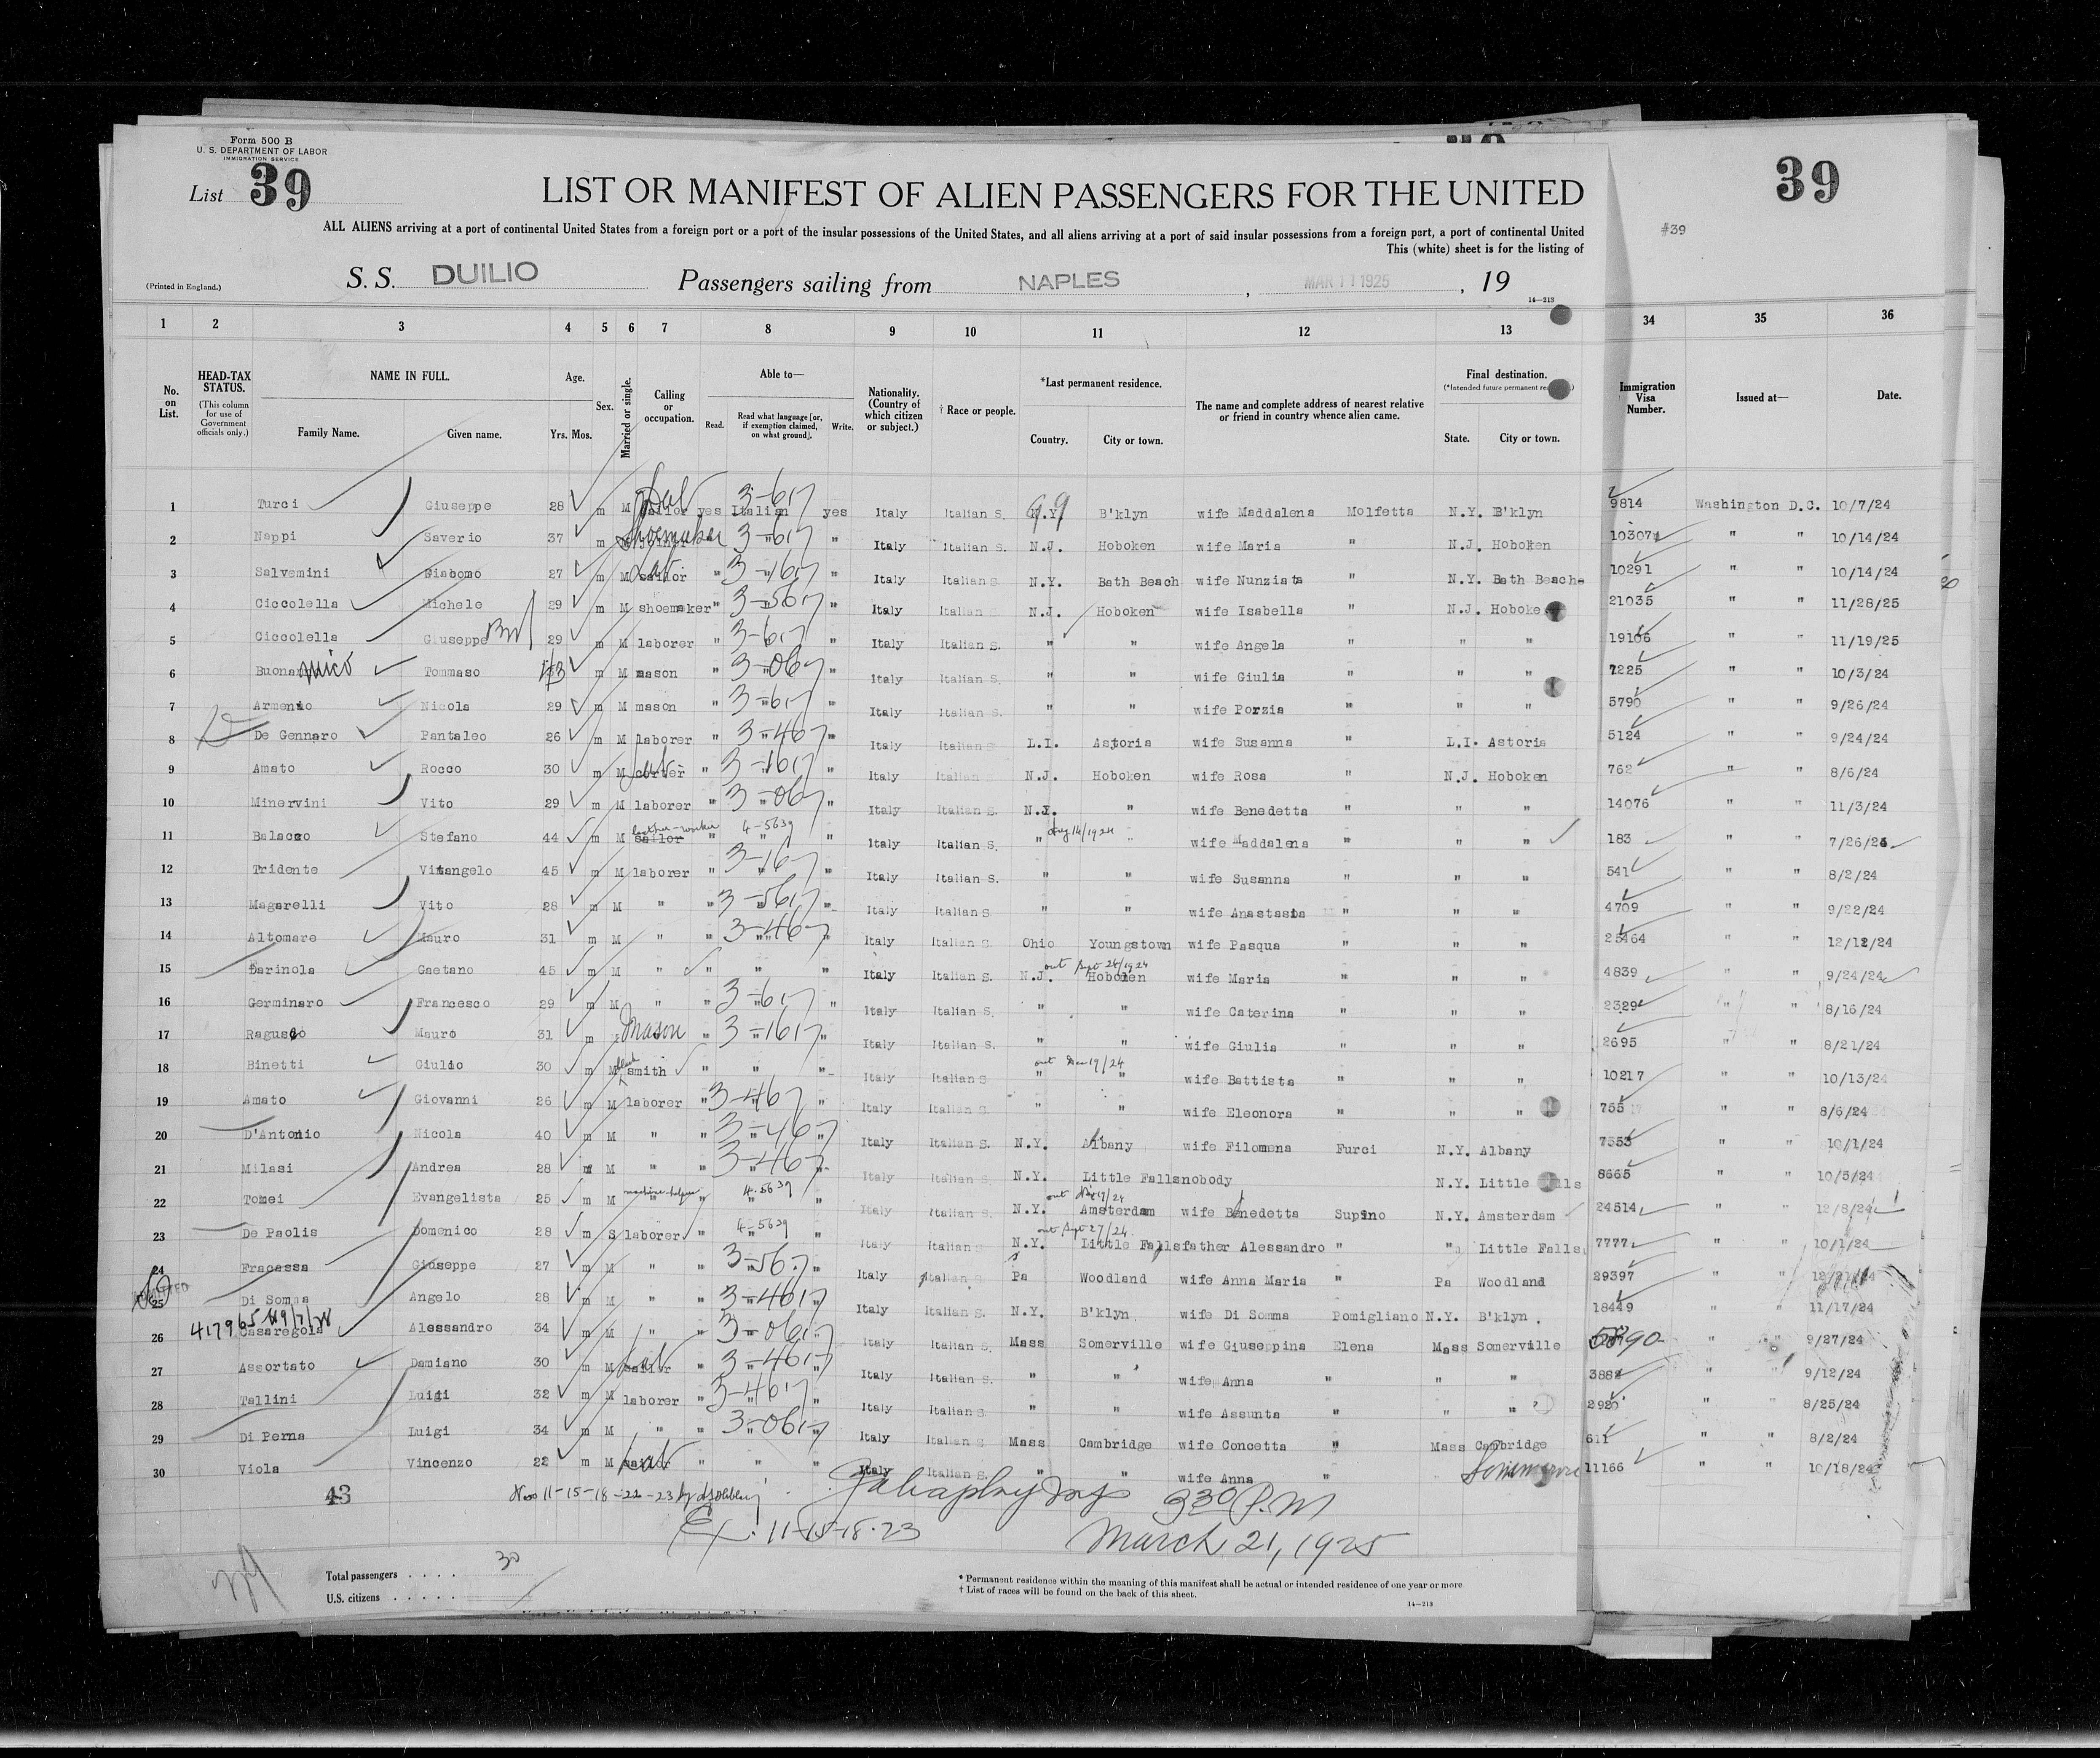 Form 500 B
U. S. DEPARTMENT OF LABOR
IMMIGRATION SERVICE
List 39
39
LIST OR MANIFEST OF ALIEN PASSENGERS FOR THE UNITED
#39
ALL ALIENS arriving at a port of continental United States from a foreign port or a port of the insular possessions of the United States, and all aliens arriving at a port of said insular possessions from a foreign port, a port of continental United
This (white) sheet is for the listing of
(Printed in England.) S. S. DUILIO Passengers sailing from NAPLES, MAR 11 1925, 19
14—213
1 2 3 4 5 6 7 8 9 10 11 12 13 34 35 36
No. on List. HEAD-TAX STATUS. (This column for use of Government officials only.) NAME IN FULL. Family Name. Given name. Age. Yrs. Mos. Sex. Married or single. Calling or occupation. Able to— Read. Read what language [or, if exemption claimed, on what ground]. Write. Nationality. (Country of which citizen or subject.) † Race or people. *Last permanent residence. Country. City or town. The name and complete address of nearest relative or friend in country whence alien came. Final destination. (*Intended future permanent State. City or town. Immigration Visa Number. Issued at— Date.
1 Turci Giuseppe 28 m M sailor yes Italian 3-617 yes Italy Italian S. N.Y. 99 B'klyn wife Maddalena Molfetta N.Y. B'klyn 9814 Washington D.C. 10/7/24
2 Nappi Saverio 37 m shoemaker " 3-617 " Italy Italian S. N.J. Hoboken wife Maria " N.J. Hoboken 10307 " " 10/14/24
3 Salvemini Giacomo 27 m M sailor " 3-1617 " Italy Italian S N.Y. Bath Beach wife Nunziata " N.Y. Bath Beach 10291 " " 10/14/24
4 Ciccolella Michele 29 m M shoemaker " 3-5617 " Italy Italian S N.J. Hoboken wife Isabella " N.J. Hoboke 21035 " " 11/28/25
5 Ciccolella Giuseppe 29 m M laborer " 3-617 " Italy Italian S. " " wife Angela " " " 19106 " " 11/19/25
6 Buonamico Tommaso 43 m M mason " 3-067 " Italy Italian S. " " wife Giulia " " " 7225 " " 10/3/24
7 Armenio Nicola 29 m M mason " 3-617 " Italy Italian S. " " wife Porzia " " " 5790 " " 9/26/24
8 De Gennaro Pantaleo 26 m M laborer " 3-467 " Italy Italian S L.I. Astoria wife Susanna " L.I. Astoria 5124 " " 9/24/24
9 Amato Rocco 30 m M " 3-1617 " Italy Italian S N.J. Hoboken wife Rosa " N.J. Hoboken 762 " " 8/6/24
10 Minervini Vito 29 m M laborer " 3-067 " Italy Italian S. N.J. " wife Benedetta " " " 14076 " " 11/3/24
11 Balacco Stefano 44 m M sailor leather-worker " 4-5639 " Italy Italian S. " Aug 14/1924 " wife Maddalena " " " 183 " " 7/26/24
12 Tridente Vitangelo 45 m M laborer " 3-167 " Italy Italian S. " " wife Susanna " " " 541 " " 8/2/24
13 Magarelli Vito 28 m M " " 3-5617 " Italy Italian S " " wife Anastasia " " " 4709 " " 9/22/24
14 Altomare Mauro 31 m M " " 3-467 " Italy Italian S Ohio Youngstown wife Pasqua " " " 25464 " " 12/12/24
15 Farinola Gaetano 45 m M " " " " Italy Italian S. N.J. out Sept 24/1924 Hoboken wife Maria " " " 4839 " " 9/24/24
16 Germinaro Francesco 29 m M " " 3-617 " Italy Italian S. " " wife Caterina " " " 2329 " " 8/16/24
17 Raguseo Mauro 31 m mason " 3-1617 " Italy Italian S. " " wife Giulia " " " 2695 " " 8/21/24
18 Binetti Giulio 30 m M blacksmith " " " Italy Italian S " out 19/24 " wife Battista " " " 10217 " " 10/13/24
19 Amato Giovanni 26 m M laborer " 3-467 " Italy Italian S " " wife Eleonora " " " 755 " " 8/6/24
20 D'Antonio Nicola 40 m M " " 3-467 " Italy Italian S. N.Y. Albany wife Filomena Furci N.Y. Albany 7553 " " 10/1/24
21 Milasi Andrea 28 m M " " 3-467 " Italy Italian S N.Y. Little Falls nobody N.Y. Little lls 8665 " " 10/5/24
22 Tomei Evangelista 25 m M machine-helper " 4-5639 " Italy Italian S. N.Y. Amsterdam wife Benedetta Supino N.Y. Amsterdam 24514 " " 12/8/24
23 De Paolis Domenico 28 m S laborer " 4-5639 " Italy Italian S N.Y. out Sept 27/24 Little Falls father Alessandro " " Little Falls 7777 " " 10/1/24
24 Fracassa Giuseppe 27 m M " " 3-567 " Italy Italian S Pa Woodland wife Anna Maria " Pa Woodland 29397 " "
25 Di Somma Angelo 28 m M " " 3-4617 " Italy Italian S. N.Y. B'klyn wife Di Somma Pomigliano N.Y. B'klyn 18449 " " 11/17/24
26 Casaregola Alessandro 34 m M " " 3-0617 " Italy Italian S. Mass Somerville wife Giuseppina Elena Mass Somerville 5890 " " 9/27/24
27 Assortato Damiano 30 m M sailor " 3-4617 " Italy Italian S. " " wife Anna " " " 3882 " " 9/12/24
28 Tallini Luigi 32 m M laborer " 3-4617 " Italy Italian S " " wife Assunta " " " 2920 " " 8/25/24
29 Di Perna Luigi 34 m M " " 3-0617 " Italy Italian S Mass Cambridge wife Concetta " Mass Cambridge 611 " " 8/2/24
30 Viola Vincenzo 22 m M sailor " " " Italy Italian S. " " wife Anna " 11166 " " 10/18/24
43
Nos 11-15-18-22-23 by
3 30 P.M
Ex. 11-15-18-23
March 21, 1925
Total passengers . . . . 30
U.S. citizens . . . . .
* Permanent residence within the meaning of this manifest shall be actual or intended residence of one year or more.
† List of races will be found on the back of this sheet.
14—213